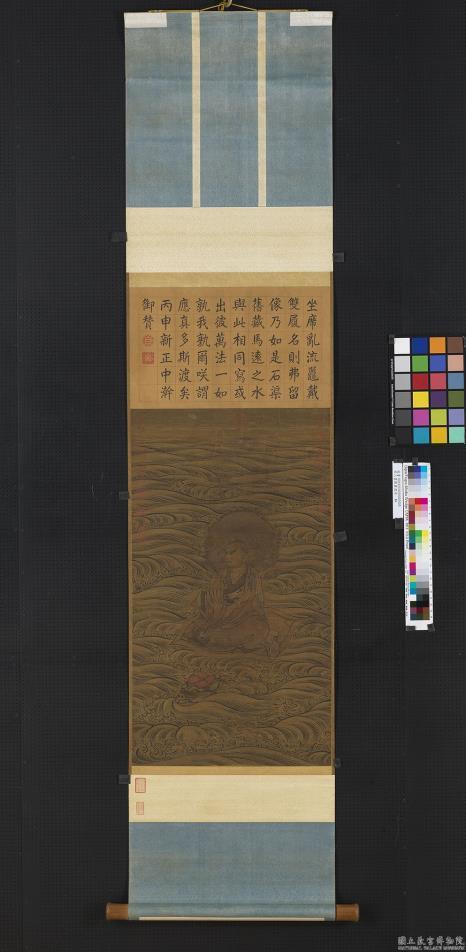 坐席亂流鼉戴
雙履名則弗留
像乃如是石渠
舊藏馬遠之水
與此相同寫或
出彼萬法一如
孰我孰爾咲謂
應真多斯波矣
丙申新正中澣
御贊
國立故宮博物院
NATIONAL PALACE MUSEUM